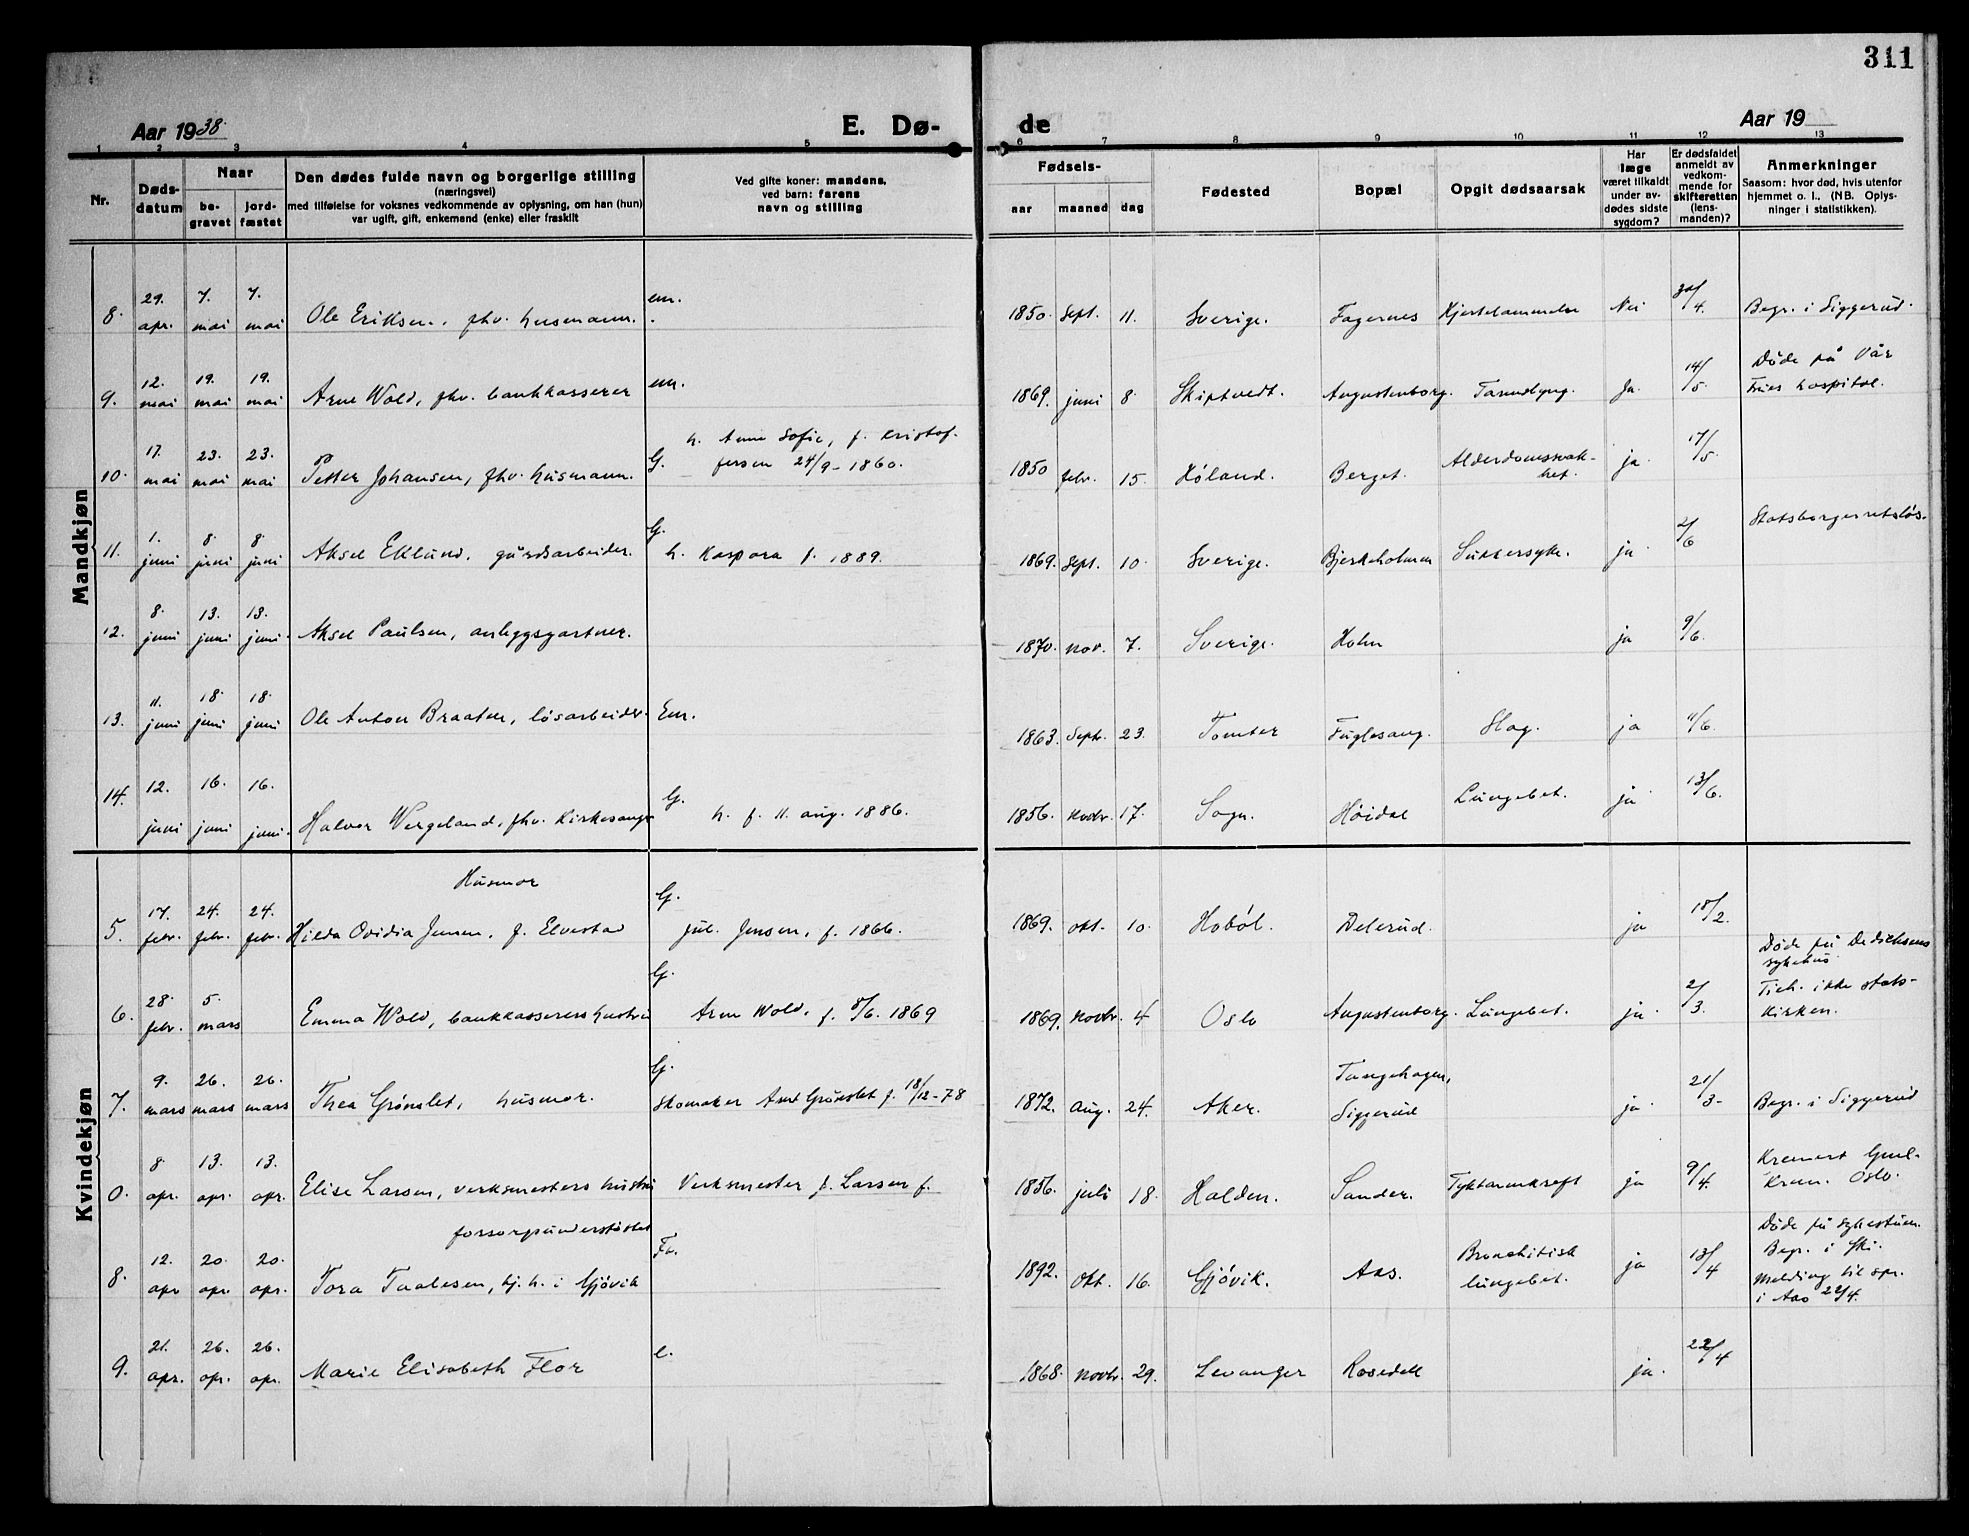 311
Aar 1938.
E. Dø-
de
Aar 19
1 2 3 4 5 6 7 8 9 10 11 12 13
Nr.
Døds-
datum
Naar
be-
gravet
jord-
fæstet
Den dødes fulde navn og borgerlige stilling
(næringsvei)
med tilføielse for voksnes vedkommende av oplysning, om han (hun)
var ugift, gift, enkemand (enke) eller fraskilt
Ved gifte koner: mandens,
ved barn: farens
navn og stilling
Fødsels-
aar maaned dag
Fødested
Bopæl
Opgit dødsaarsak
Har
læge
været tilkaldt
under av-
dødes sidste
sygdom?
Er dødsfaldet
anmeldt av
vedkom-
mende for
skifteretten
(lens-
manden)?
Anmerkninger
Saasom: hvor død, hvis utenfor
hjemmet o. l., (NB. Oplys-
ninger i statistikken).
Mandkjøn
8. 29. apr. 7. mai 7. mai Ole Eriksen, fhv. husmann. em. 1850. sept. 11. Sverige. Fagernes Hjertelammelse Nei 30/4. Begr. i Siggerud.
9. 12. mai 19. mai 19. mai Arne Wold, fhv. bankkasserer em. 1869. juni 8. Skiptvedt. Augustenborg. Ja. 14/5. Døde på Vår
Frues hospital.
10. 17. mai 23. mai 23. mai Petter Johansen, fhv. husmann. G. h. Anne Sofie, f. Kristof-
fersen 24/9-1860.
1850 febr. 15. Høland. Berget. Alderdomssvak-
het. ja. 17/5.
11. 1. juni 8. juni 8. juni Aksel Eklund, gårdsarbeider. G. h. Kaspara f. 1889. 1869. sept. 10. Sverige. Bjerkeholmen Sukkersyke. ja. 2/6 Statsborgerretsløs.
12. 8. juni 13. juni 13. juni. Aksel Paulsen, anleggsgartner. 1870. nov. 7. Sverige. Holm ja 9/6.
13. 11. juni 18. juni 18. juni Ole Anton Braaten, løsarbeider. Em. 1863. Septr. 23. Tomter Fuglesang. Slag. ja 11/6.
14. 12. juni 16. juni 16. juni. Halvor Wergeland, fhv. Kirkesanger G. h. f. 11. aug. 1886. 1856. Novbr. 17. Sogn. Høidal Lungebet. ja 13/6.
Kvindekjøn
Husmor
5. 17. febr. 24. febr. 24. febr. Hilda Ovidia Jensen, f. Elvestad G. Jul. Jensen, f. 1866. 1869. okt. 10. Hobøl. Delerud. ja 18/2.
6. 28. febr. 5. mars Emma Wold, bankkasserers hustru G. Arne Wold, f. 8/6. 1869 1869. Novbr. 4 Oslo Augustenborg. Lungebet. ja. 2/3. Døde på Dedichens
sykehus
Tilh. ikke stats-
kirken.
7. 9. mars 26. mars 26. mars Thea Grønslet, husmor. G. Skomaker Axel Grønslet f. 18/12-78 1872. Aug. 24. Aker. Tangehagen,
Siggerud ja. 21/3- Begr. i Siggerud
0. 8. apr. 13. apr. 13. apr. Elise Larsen, verksmesters hustru Verksmester f. Larsen f. 1856. juli 18. Halden. Sander. Tyktarmkreft ja 9/4. Kremert Gml.
Krem. Oslo.
forsorgsunderstøttet
8. 12. apr. 20. apr. 20. apr. Tora Paalesen, hj. h. i Gjøvik Fr. 1892. Okt. 16. Gjøvik. Aas. Bronchitisk
lungebet. ja 13/4 Døde på sykestuen.
Begr. i Ski.
Melding til spr.
i Aas 22/4.
9. 21. apr. 26. apr. 26. apr. Marie Elisabeth Flor e. 1868. Novbr. 29. Levanger Rosedal ja. 22/4